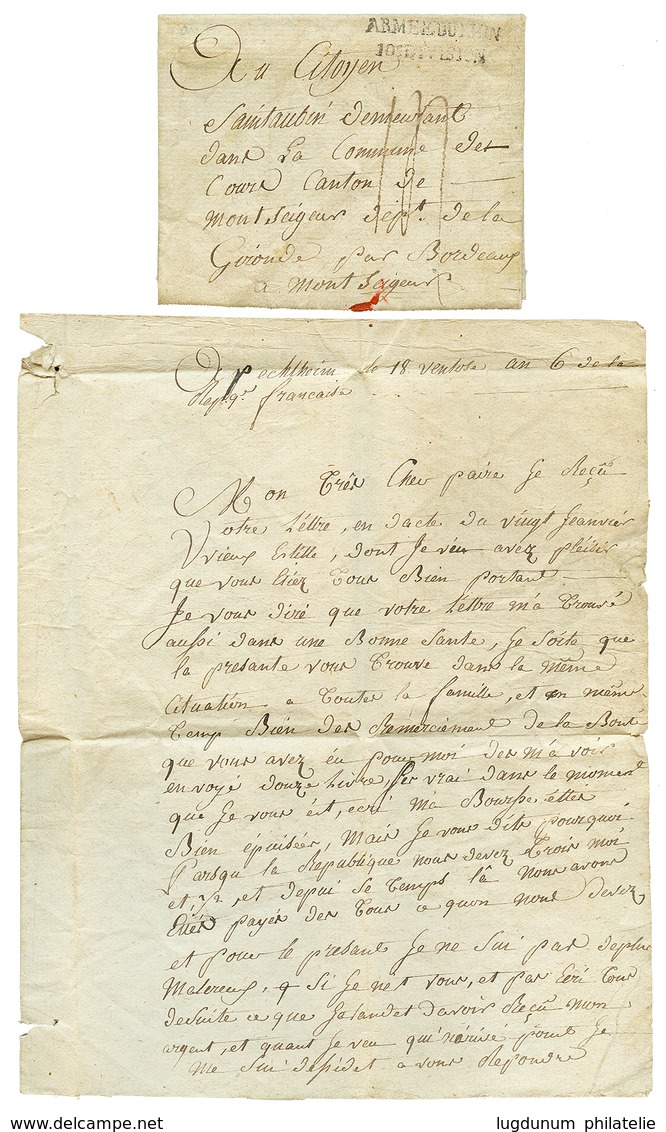 ARMÉE DU RHIN
10E DIVISION
Au Citoyen
Saintaubin demeurant
dans La Commune des
Cours Canton de
Montseigeur dept. de la
Gironde par Bordeaux
a Mont Seigeur
le 18 ventose an 6 de la
Rep.qe francaise
Mon très Cher paire Je Reçu
Votre Lettre, en dacte du vingt Jeanvier
Vrieux Estille, dont Je veu avez pleisir
que vous Etiez Tous Bien portant
Je vous diré que votre Lettre m'a trouvé
aussi dans une Bonne Sante, Je Soite que
la presante vous Trouve dans la même
Cituation a Toutes la famille, et en même
Temp Bien des Remerciement de la Bonté
que vous avez éu pour moi des m'a voir
envoyé douze Livre, vrai dans le moment
que Je vous ecri ma Bourse ettes
Bien épuisées, Mais Je vous dits pourquoi
Parsqu la Republique nous devez Trois moi
et 1/2, et depui se Temps là Nous avons
Etté payés des Tous ce quon nous devez
et pour le presant Je ne Sui pas deplus
Malereux, Si Je ne vous, et pas Ecri Tous
desuite ce que Jatandet Davoir Reçu mon
argent, et quant Je veu qu'il n'arivé point Je
Me Sui désidet a vous Repondre
lugdunum philatelie